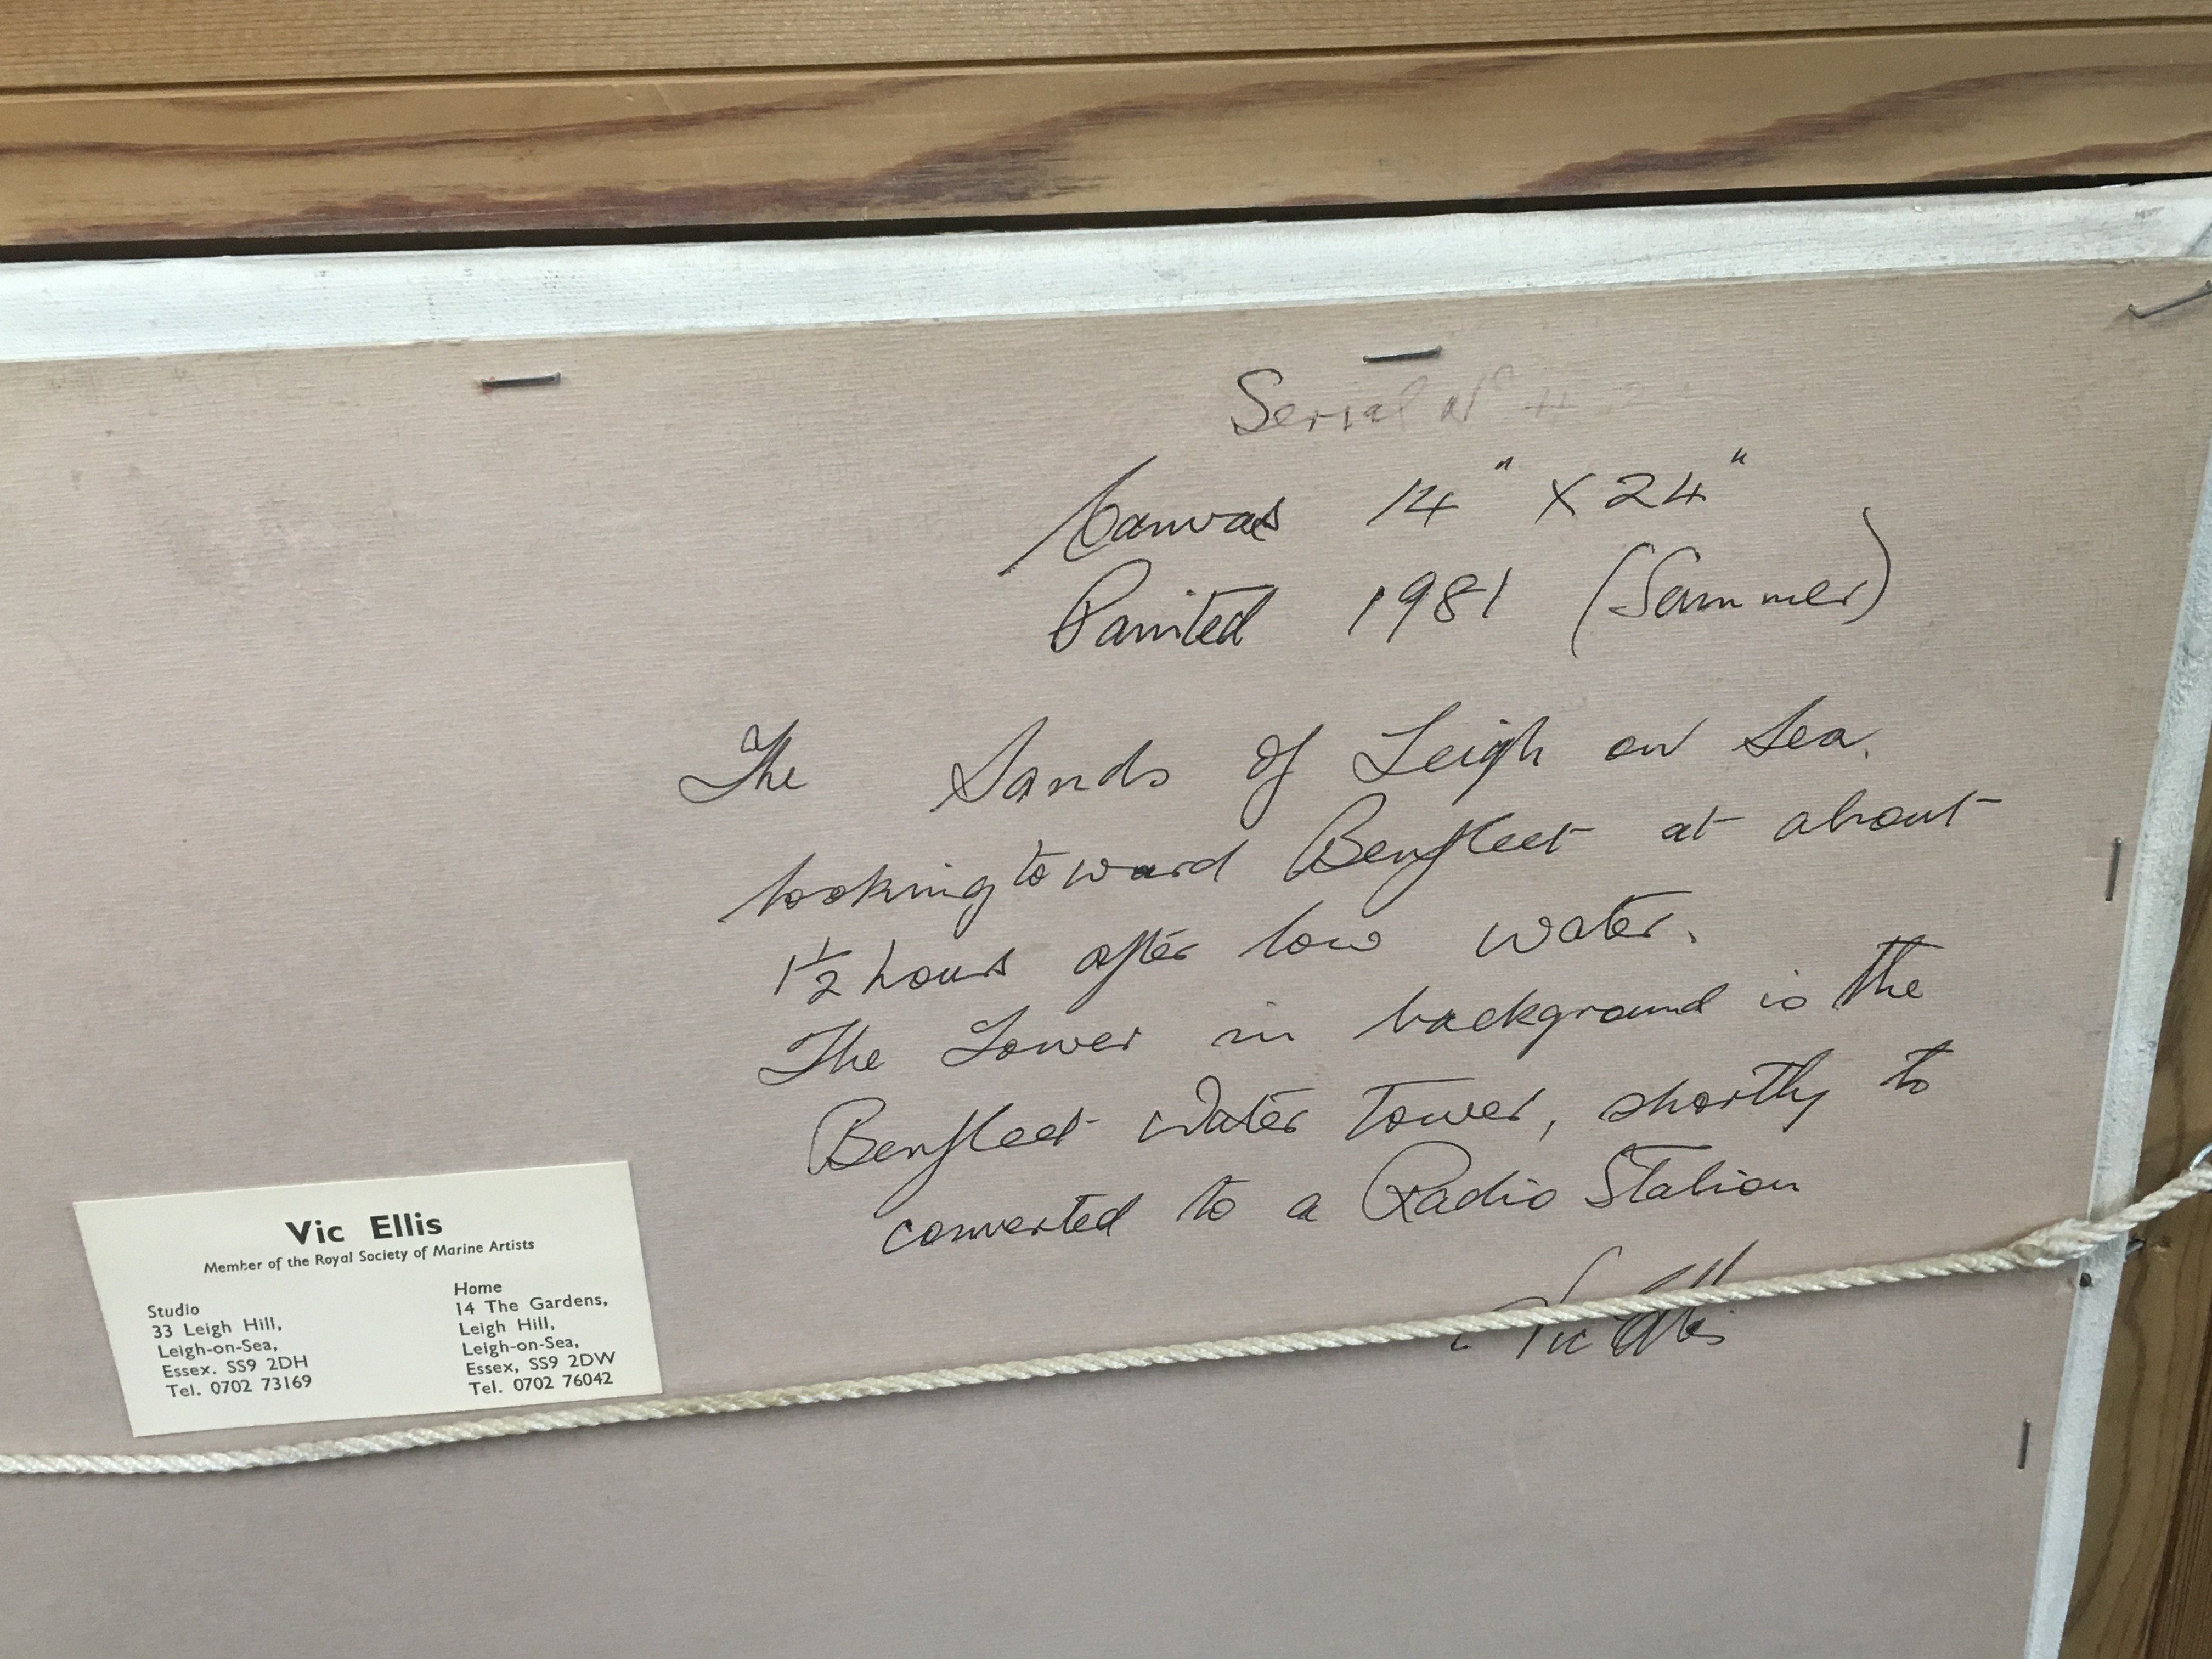 Serial No
Canvas 14" X 24"
Painted 1981 (Summer)
The Sands of Leigh on Sea.
looking toward Benfleet at about
1½ hours after low water.
The Tower in background is the
Benfleet Water Tower, shortly to
converted to a Radio Station
Vic Ellis
Vic Ellis
Member of the Royal Society of Marine Artists
Studio
33 Leigh Hill,
Leigh-on-Sea,
Essex. SS9 2DH
Tel. 0702 73169
Home
14 The Gardens,
Leigh Hill,
Leigh-on-Sea,
Essex, SS9 2DW
Tel. 0702 76042